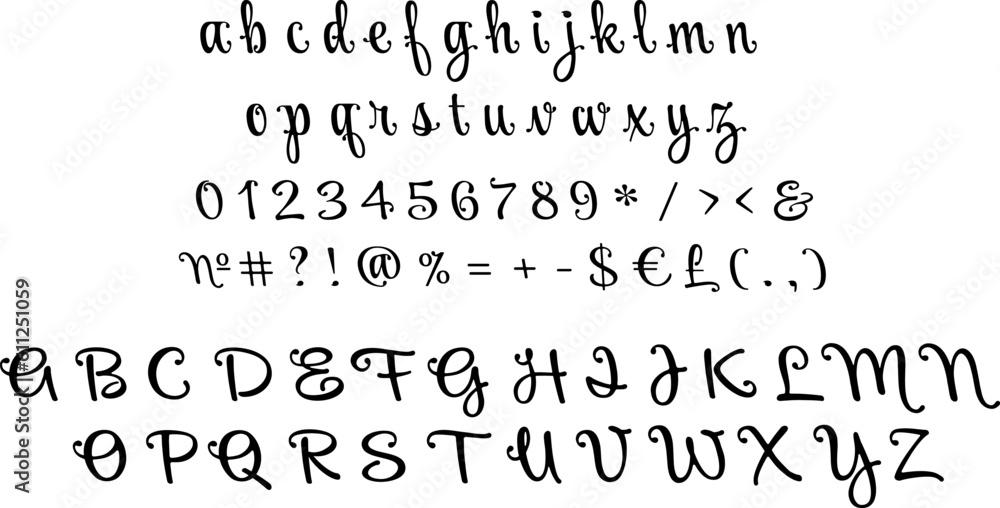 a b c d e f g h i j k l m n
o p q r s t u v w x y z
0 1 2 3 4 5 6 7 8 9 * / > < &
№ # ? ! @ % = + - $ € £ ( . , )
A B C D E F G H I J K L M N
O P Q R S T U V W X Y Z
Adobe Stock | #611251059